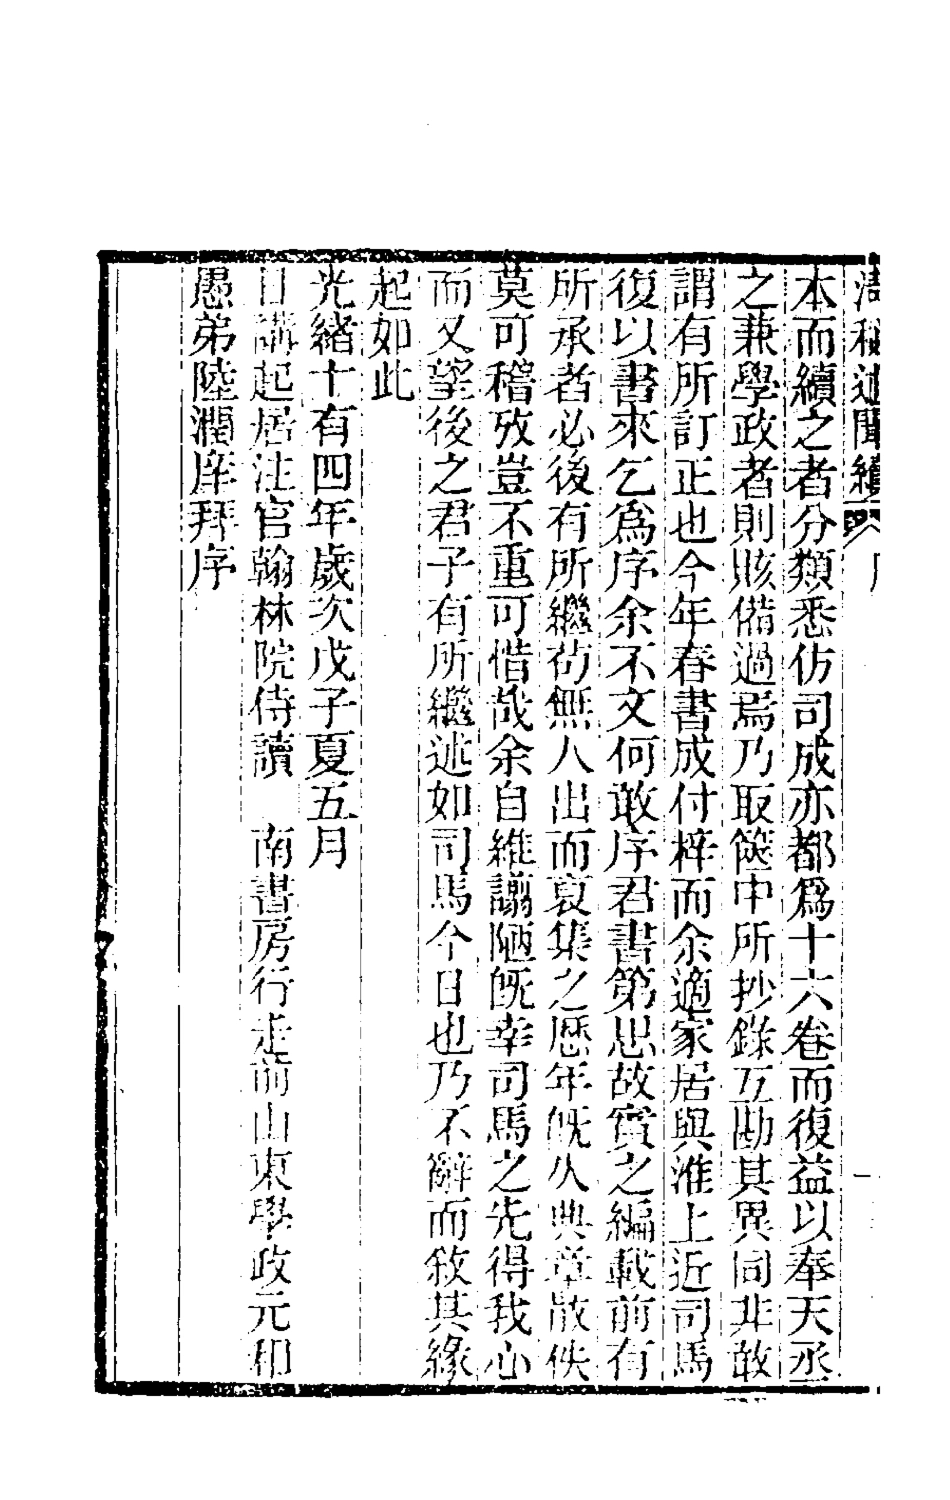 清秘述聞續 序 一
本而續之者分類悉仿司成亦都爲十六卷而復益以奉天丞
之兼學政者則賅備過焉乃取篋中所抄錄互勘其異同非敢
謂有所訂正也今年春書成付梓而余適家居與淮上近司馬
復以書來乞爲序余不文何敢序君書第思故實之編載前有
所承者必後有所繼茍無人出而裒集之歷年旣久典章散佚
莫可稽攷豈不重可惜哉余自維謭陋旣幸司馬之先得我心
而又望後之君子有所繼述如司馬今日也乃不辭而敘其緣
起如此
光緒十有四年歲次戊子夏五月
日講起居注官翰林院侍讀 南書房行走前山東學政元和
愚弟陸潤庠拜序